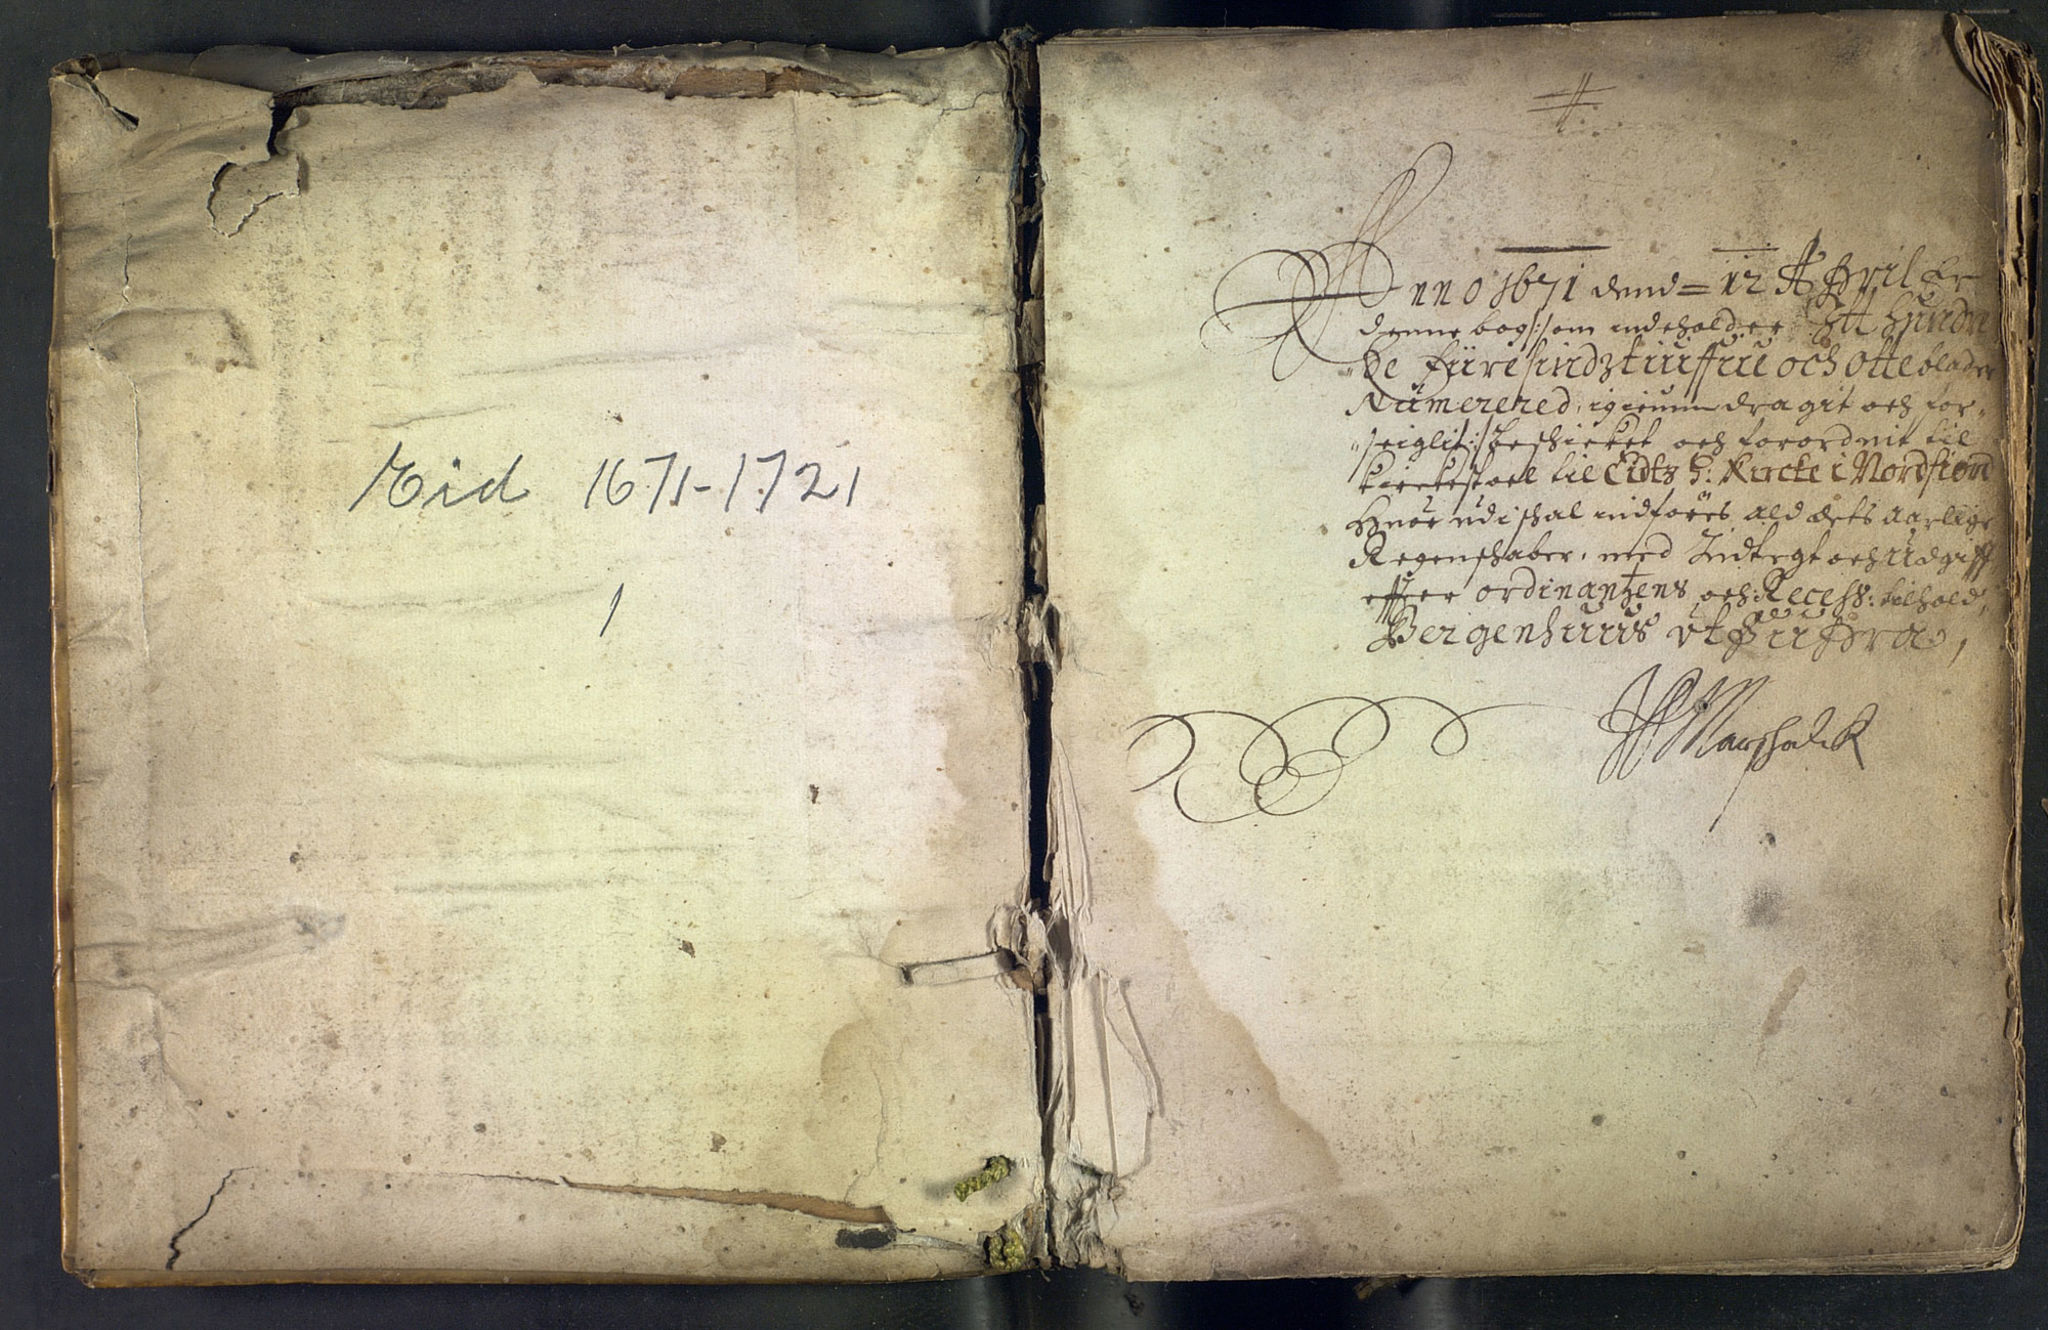 Eid 1671-1721
1
Anno 1671 dend = 12 April Er
denne bog /: som indeholder Ett Hundre
de Fiiresindztiuffue och otte blade
Nümerered, igiennemdragit och for-
seiglit :/ beschicket och forordnit til
Kirckestoel til Eidtz H: Kircke i Nordfiord
Huor udi schal indføres ald dets Aarlige
Regenschaber, med Indtegt och Udgifft
effter ordinantzens och Recess: tilhold,
Bergenhuus ut supra,
Marschalck